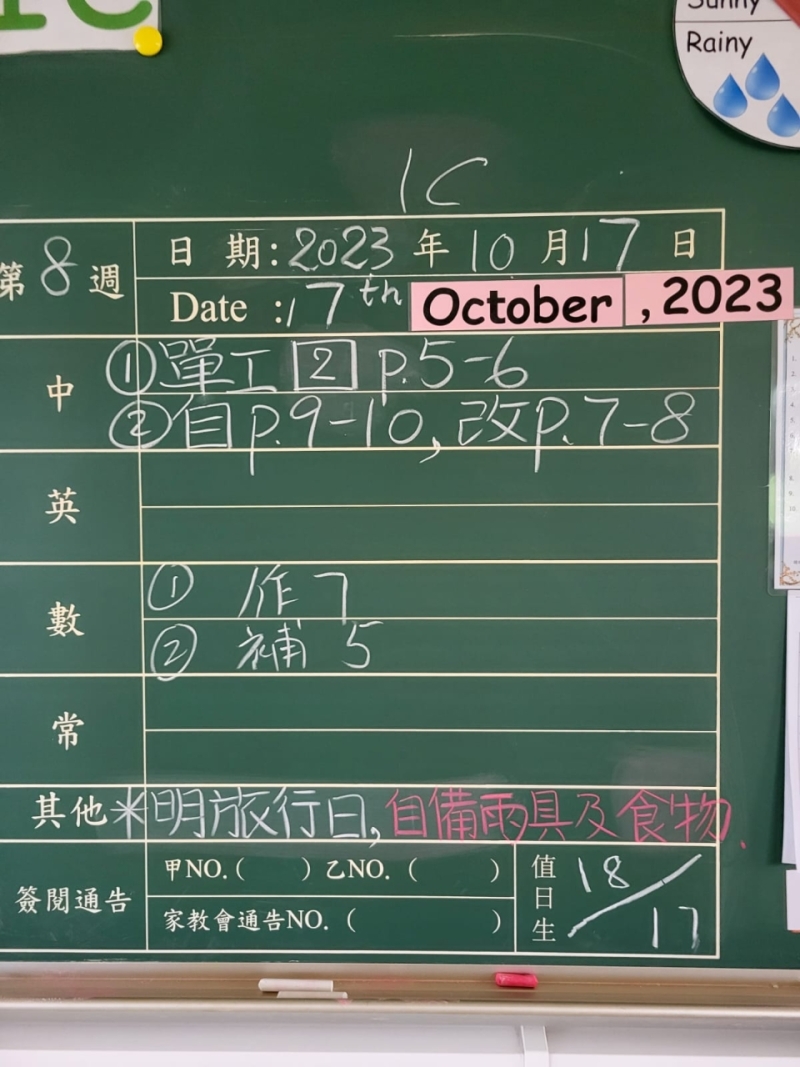 Sunny
Rainy
1C
第8週
日 期：2023年10月17日
Date ：17th October , 2023
中
①單工[2] p.5-6
②自p.9-10, 改p.7-8
英
數
① 作7
② 補 5
常
其他 *明旅行日, 自備雨具及食物.
簽閱通告
甲NO.( ) 乙NO. ( )
家教會通告NO. ( )
值日生
18/17